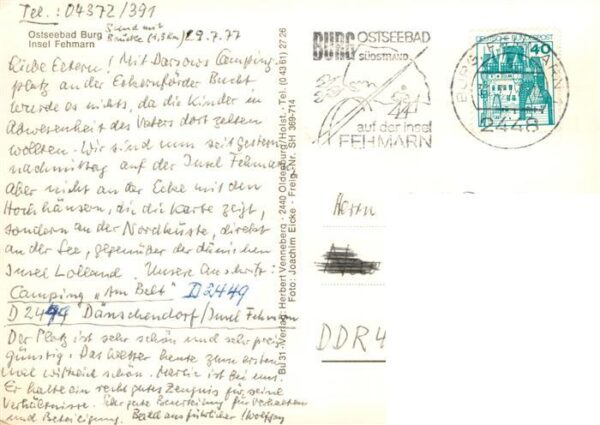 Tel.: 04372/391
Ostseebad Burg
Insel Fehmarn
Sund mit
Brücke (1,3km)
29.7.77
Liebe Eltern! Mit Darsows Camping-
platz an der Eckernförder Bucht
wurde es nichts, da die Kinder in
Abwesenheit des Vaters dort zelten
wollten. Wir sind nun seit gestern
nachmittag auf der Insel Fehmarn
Aber nicht an der Ecke mit den
Hochhäusern, die die Karte zeigt,
sondern an der Nordküste, direkt
an der See, gegenüber der dänischen
Insel Lolland. Unsere Anschrift:
Camping "Am Belt" D2449
D 2449 Dänschendorf/Insel Fehmarn
Der Platz ist sehr schön und sehr preis-
günstig. Das Wetter heute zum ersten
mal wirklich schön. Martin ist bei uns.
Er hatte ein recht gutes Zeugnis für seine
Verhältnisse. Sehr gute Beurteilung für Verhalten
und Beteiligung. Bald ausführlicher! Wolfgang
Bu 31 · Verlag Herbert Venneberg · 2440 Oldenburg/Holst. · Tel. (04361) 27 26
Foto: Joachim Eicke · Freig.-Nr. SH 369-714
BURG OSTSEEBAD
SÜDSTRAND
auf der Insel
FEHMARN
DEUTSCHE BUNDESPOST
40
BURG
2448
Herrn
DDR 4